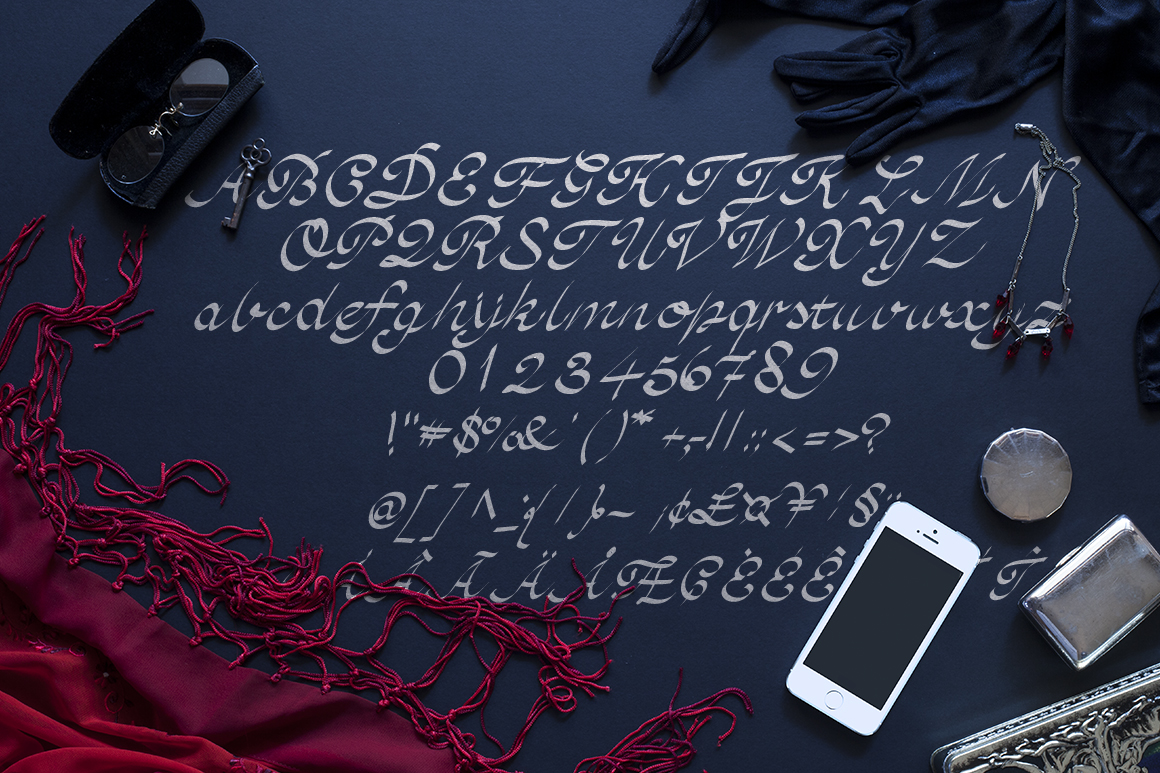 ABCDEFGHIJKLMN
OPQRSTUVWXYZ
abcdefghijklmnopqrstuvwxyz
0123456789
!"#$%&'()*+,-./:;<=>?
@[\]^_{|}~¡¢£¤¥¦§¨
ÁÂÃÄÅÆÇÈÉÊ Î